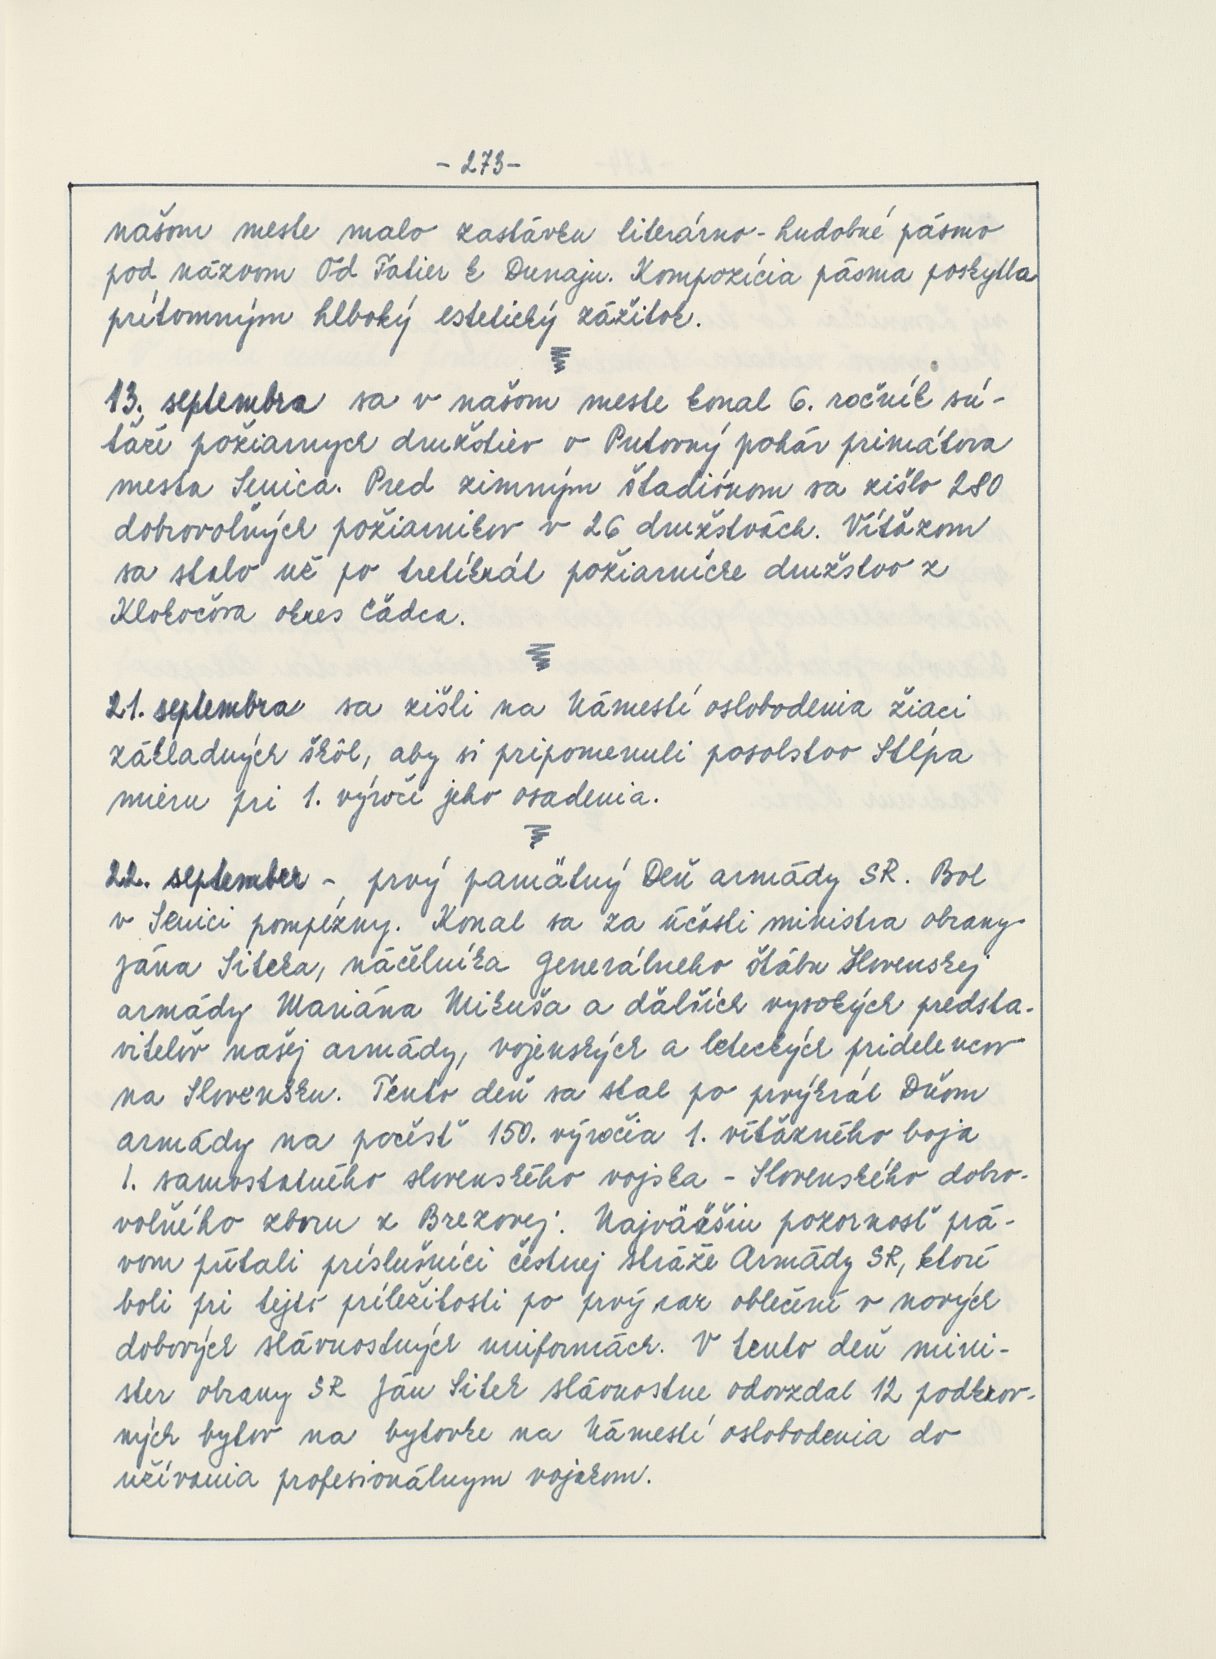 - 273 -
našom meste malo zastávku literárno - hudobné pásmo
pod názvom Od Tatier k Dunaju. Kompozícia pásma poskytla
prítomným hlboký estetický zážitok.
13. septembra sa v našom meste konal 6. ročník sú-
ťaží požiarnych družstiev o Putovný pohár primátora
mesta Senica. Pred zimným štadiónom sa zišlo 280
dobrovoľných požiarnikov v 26 družstvách. Víťazom
sa stalo už po tretíkrát požiarnícke družstvo z
Klokočova okres Čadca.
21. septembra sa zišli na Námestí oslobodenia žiaci
základných škôl, aby si pripomenuli posolstvo Stĺpa
mieru pri 1. výročí jeho osadenia.
22. september - prvý pamätný Deň armády SR. Bol
v Senici pompézny. Konal sa za účasti ministra obrany
Jána Siteka, náčelníka Generálneho štábu Slovenskej
armády Mariána Mikuša a ďalších vysokých predsta-
viteľov našej armády, vojenských a leteckých pridelencov
na Slovensku. Tento deň sa stal po prvýkrát Dňom
armády na počesť 150. výročia 1. víťazného boja
1. samostatného slovenského vojska - Slovenského dobro-
voľného zboru z Brezovej. Najväčšiu pozornosť prá-
vom pútali príslušníci čestnej stráže Armády SR, ktorí
boli pri tejto príležitosti po prvý raz oblečení v nových
dobových slávnostných uniformách. V tento deň mini-
ster obrany SR Ján Sitek slávnostne odovzdal 12 podkrov-
ných bytov na bytovke na Námestí oslobodenia do
užívania profesionálnym vojakom.